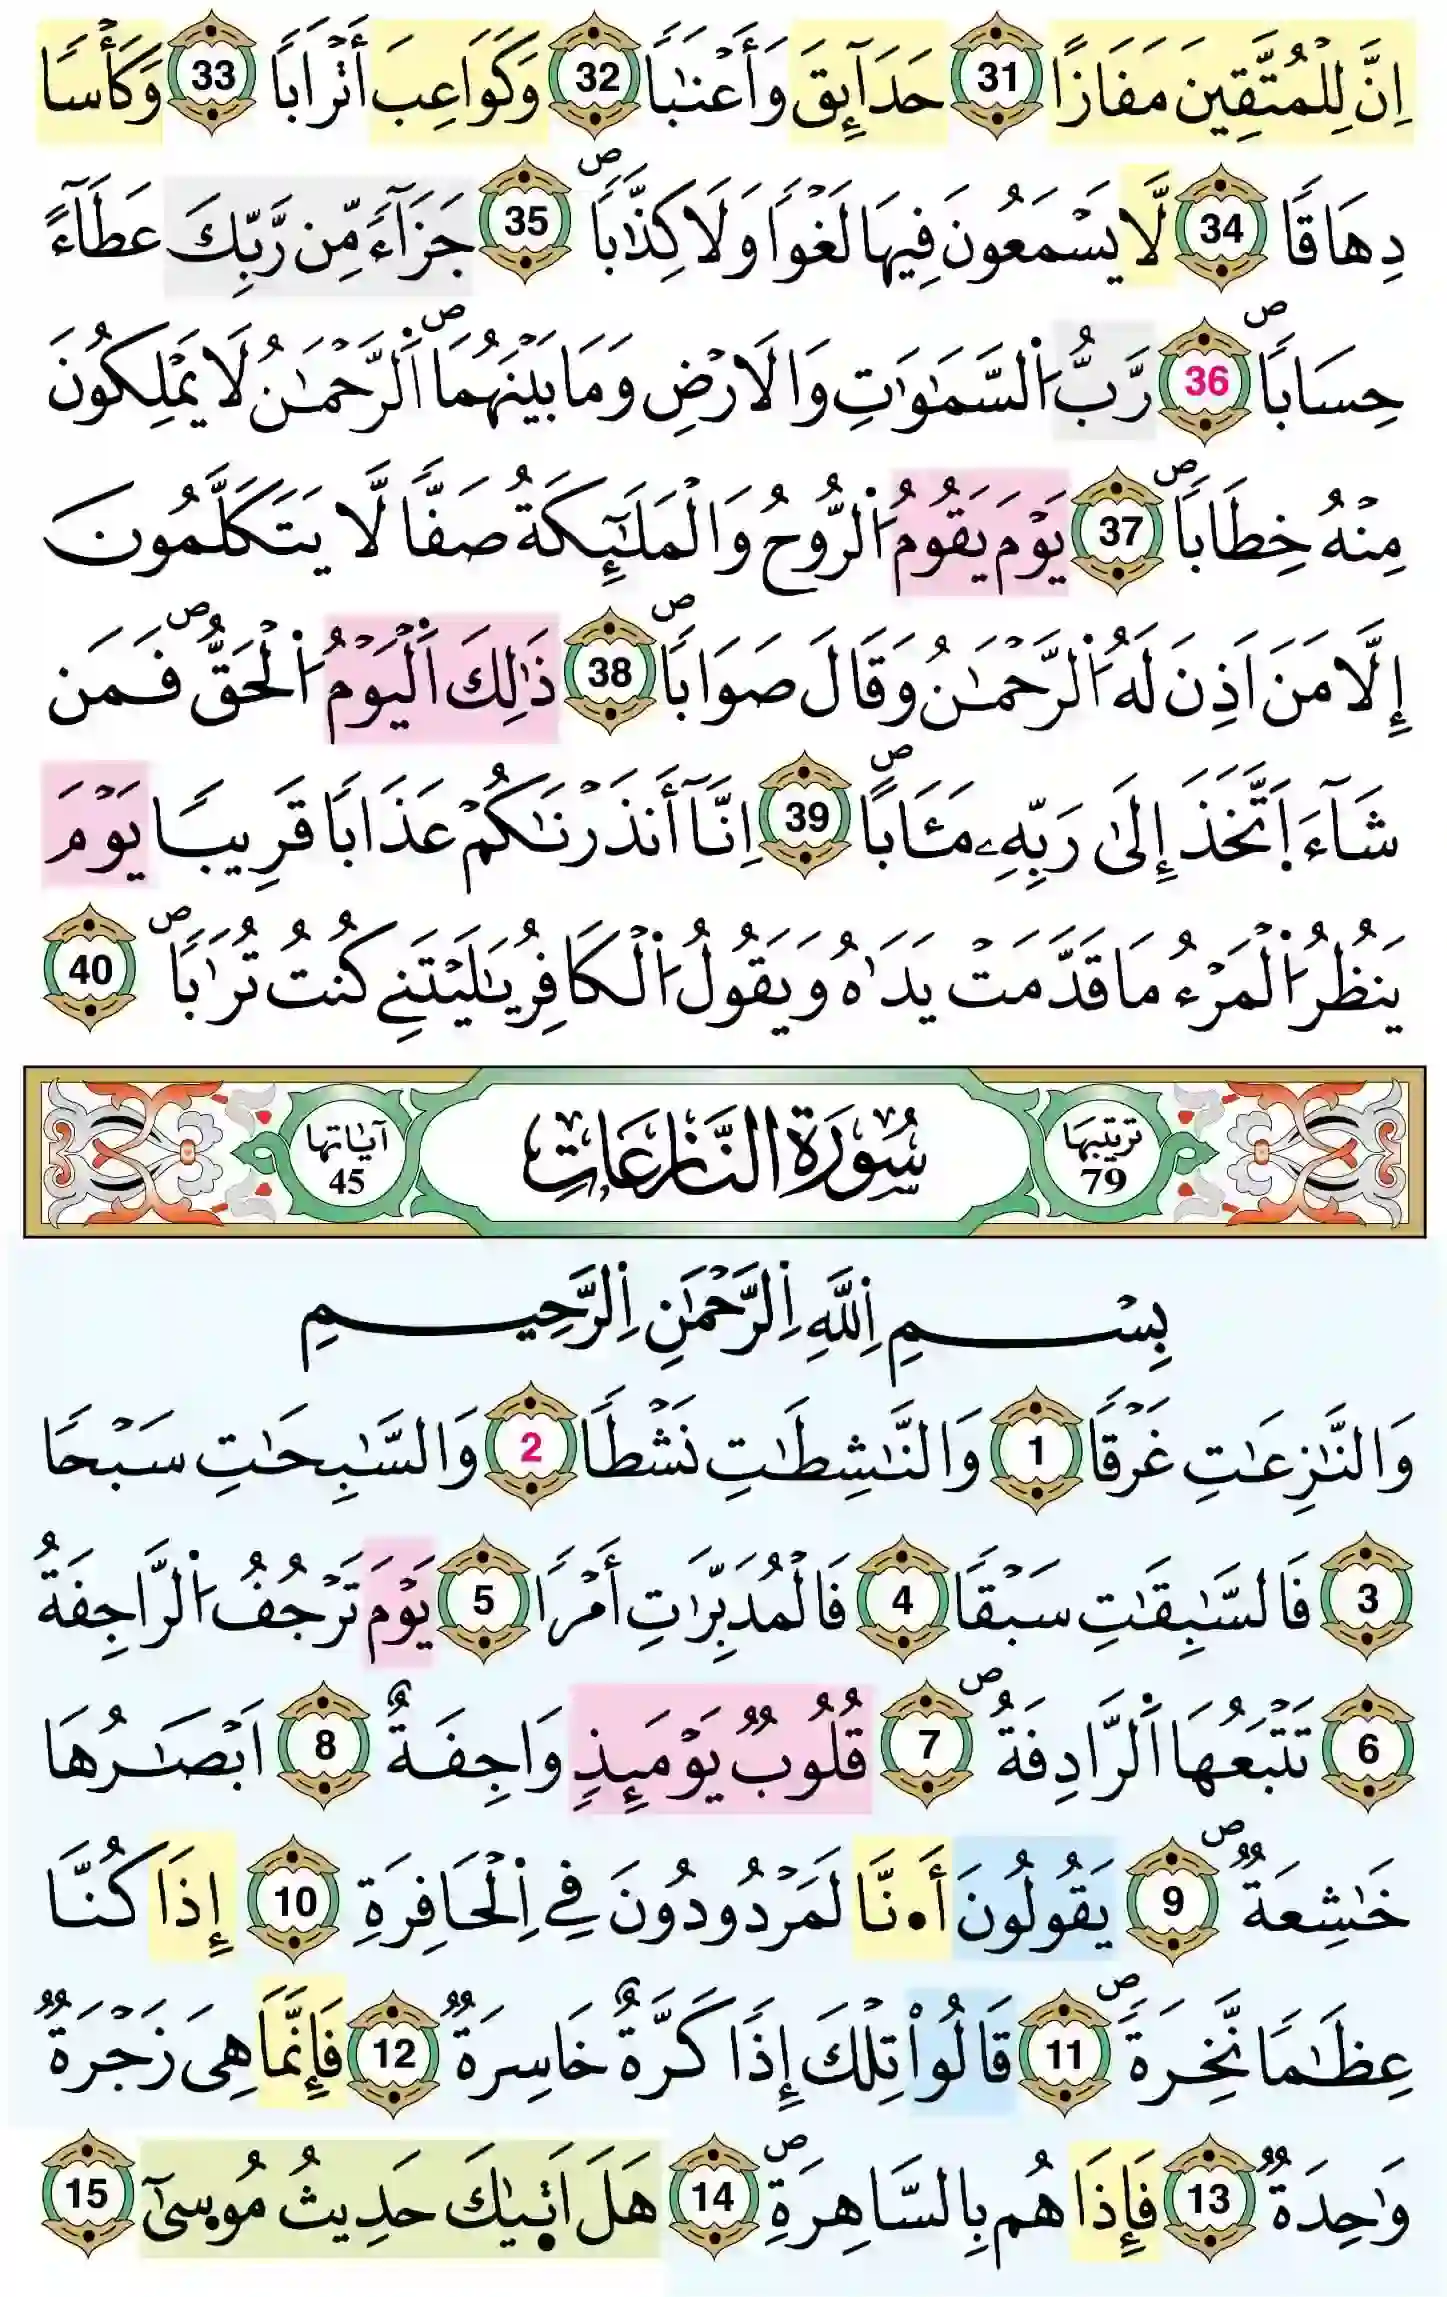 اِنَّ لِلْمُتَّقِينَ مَفَازًا 31 حَدَآئِقَ وَأَعْنَٰبًا 32 وَكَوَاعِبَ أَتْرَابًا 33 وَكَأْسًا
دِهَاقًا 34 لَّا يَسْمَعُونَ فِيهَا لَغْوًا وَلَا كِذَّٰبًا ص 35 جَزَآءً مِّن رَّبِّكَ عَطَآءً
حِسَابًا ص 36 رَّبُّ اُ۬لسَّمَٰوَٰتِ وَالَارْضِ وَمَا بَيْنَهُمَا ص اَ۬لرَّحْمَٰنُ لَا يَمْلِكُونَ
مِنْهُ خِطَابًا ص 37 يَوْمَ يَقُومُ اُ۬لرُّوحُ وَالْمَلَٰٓئِكَةُ صَفًّا لَّا يَتَكَلَّمُونَ
إِلَّا مَنَ اَذِنَ لَهُ اُ۬لرَّحْمَٰنُ وَقَالَ صَوَابًا ص 38 ذَٰلِكَ اَ۬لْيَوْمُ اُ۬لْحَقُّ ص فَمَن
شَآءَ اَ۪تَّخَذَ إِلَىٰ رَبِّهِۦ مَـَٔابًا ص 39 اِنَّآ أَنذَرْنَٰكُمْ عَذَابًا قَرِيبًا يَوْمَ
يَنظُرُ اُ۬لْمَرْءُ مَا قَدَّمَتْ يَدَٰهُ وَيَقُولُ اُ۬لْكَافِرُ يَٰلَيْتَنِے كُنتُ تُرَٰبًا ص 40
ترتيبها 79 سُورَةُ النَّازِعَاتِ آيَاتها 45
بِسْمِ اِ۬للَّهِ اِ۬لرَّحْمَٰنِ اِ۬لرَّحِيمِ
وَالنَّٰزِعَٰتِ غَرْقًا 1 وَالنَّٰشِطَٰتِ نَشْطًا 2 وَالسَّٰبِحَٰتِ سَبْحًا
3 فَالسَّٰبِقَٰتِ سَبْقًا 4 فَالْمُدَبِّرَٰتِ أَمْرًا 5 يَوْمَ تَرْجُفُ اُ۬لرَّاجِفَةُ
6 تَتْبَعُهَا اَ۬لرَّادِفَةُ ص 7 قُلُوبٌ يَوْمَئِذٍ وَاجِفَةٌ 8 اَبْصَٰرُهَا
خَٰشِعَةٌ ص 9 يَقُولُونَ أَ•نَّا لَمَرْدُودُونَ فِے اِ۬لْحَافِرَةِ 10 إِذَا كُنَّا
عِظَٰمًا نَّخِرَةً ص 11 قَالُواْ تِلْكَ إِذًا كَرَّةٌ خَاسِرَةٌ 12 فَإِنَّمَا هِىَ زَجْرَةٌ
وَٰحِدَةٌ 13 فَإِذَا هُم بِالسَّاهِرَةِ ص 14 هَلَ اَت۪يٰكَ حَدِيثُ مُوسىٰٓ 15